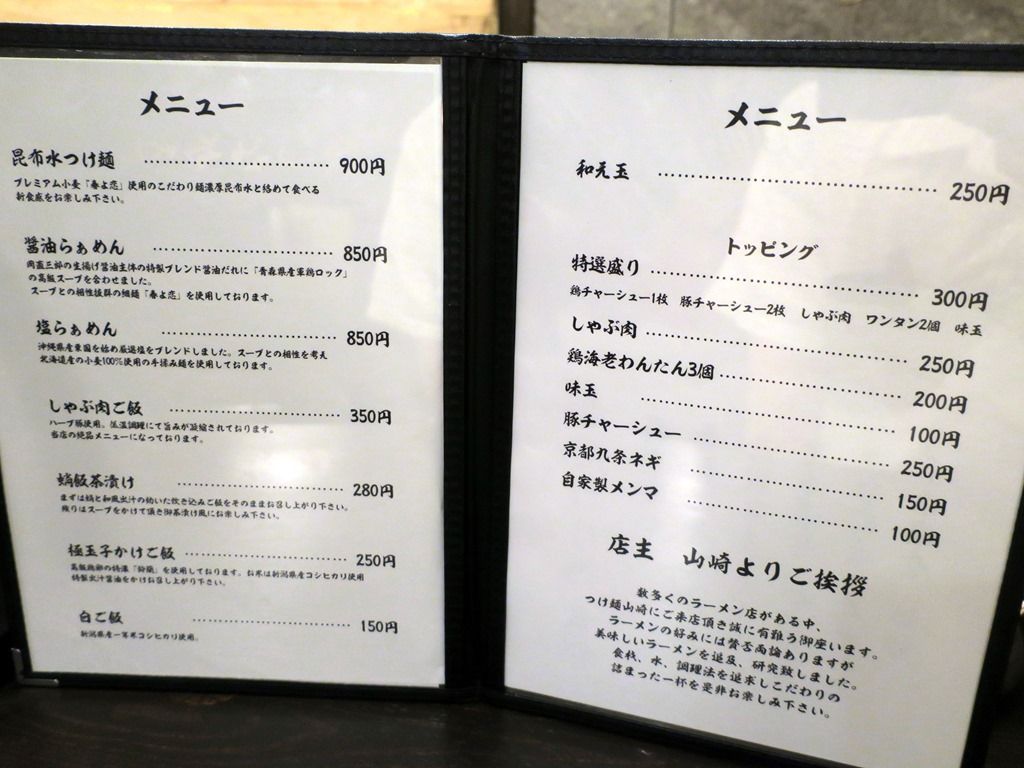 メニュー
昆布水つけ麺 ............................ 900円
プレミアム小麦「春よ恋」使用のこだわり麺濃厚昆布水と絡めて食べる
新食感をお楽しみ下さい。
醤油らぁめん ............................ 850円
岡直三郎の生揚げ醤油主体の特製ブレンド醤油だれに「青森県産軍鶏ロック」
の高級スープを合わせました。
スープとの相性抜群の細麺「春よ恋」を使用しております。
塩らぁめん ............................ 850円
沖縄県産粟国を始め厳選塩をブレンドしました。スープとの相性を考え
北海道産の小麦100%使用の手揉み麺を使用しております。
しゃぶ肉ご飯 ............................ 350円
ハーブ豚使用。低温調理にて旨みが凝縮されております。
当店の絶品メニューになっております。
蛸飯茶漬け ............................ 280円
まずは蛸と和風出汁の効いた炊き込みご飯をそのままお召し上がり下さい。
残りはスープをかけて頂き御茶漬け風にお楽しみ下さい。
極玉子かけご飯 ............................ 250円
使用しております。お米は新潟県産コシヒカリ使用
特製出汁醤油をかけお召し上がり下さい。
白ご飯 ............................ 150円
新潟県産一等米コシヒカリ使用。
メニュー
和え玉 ............................ 250円
トッピング
特選盛り ............................ 300円
鶏チャーシュー1枚 豚チャーシュー2枚 しゃぶ肉 ワンタン2個 味玉
しゃぶ肉 ............................ 250円
鶏海老わんたん3個 ............................ 200円
味玉 ............................ 100円
豚チャーシュー ............................ 250円
京都九条ネギ ............................ 150円
自家製メンマ ............................ 100円
店主 山崎よりご挨拶
数多くのラーメン店がある中、
つけ麺山崎にご来店頂き誠に有難う御座います。
ラーメンの好みには賛否両論ありますが
美味しいラーメンを追及、研究致しました。
食材、水、調理法を追求しこだわりの
詰まった一杯を是非お楽しみ下さい。